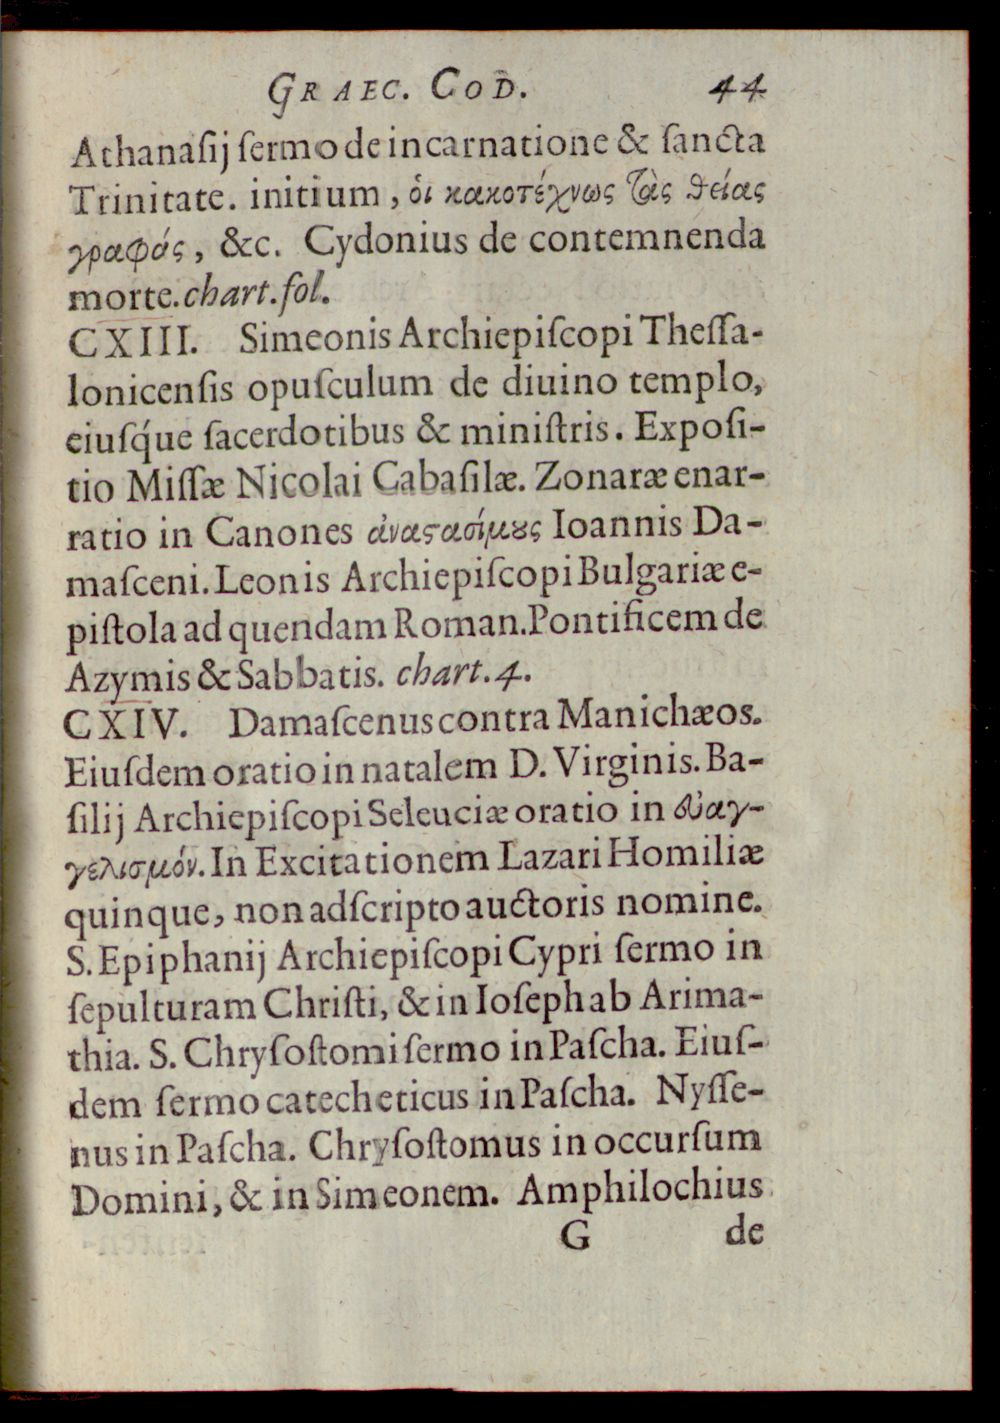 GRAEC. COD. 44
Athanaſij ſermo de incarnatione & ſancta
Trinitate. initium, ὁι κακοτέχνως τὰς θείας
γραφάς, &c. Cydonius de contemnenda
morte. chart. fol.
CXIII. Simeonis Archiepiſcopi Theſſa-
lonicenſis opuſculum de diuino templo,
eiuſq́ue ſacerdotibus & miniſtris. Expoſi-
tio Miſſæ Nicolai Cabaſilæ. Zonaræ enar-
ratio in Canones ἀναϛασίμȣς Ioannis Da-
maſceni. Leonis Archiepiſcopi Bulgariæ e-
piſtola ad quendam Roman. Pontificem de
Azymis & Sabbatis. chart. 4.
CXIV. Damaſcenus contra Manichæos.
Eiuſdem oratio in natalem D. Virginis. Ba-
ſilij Archiepiſcopi Seleuciæ oratio in ἐυαγ-
γελισμόν. In Excitationem Lazari Homiliæ
quinque, non adſcripto auctoris nomine.
S. Epiphanij Archiepiſcopi Cypri ſermo in
ſepulturam Chriſti, & in Ioſeph ab Arima-
thia. S. Chryſoſtomi ſermo in Paſcha. Eiuſ-
dem ſermo catecheticus in Paſcha. Nyſſe-
nus in Paſcha. Chryſoſtomus in occurſum
Domini, & in Simeonem. Amphilochius
G de